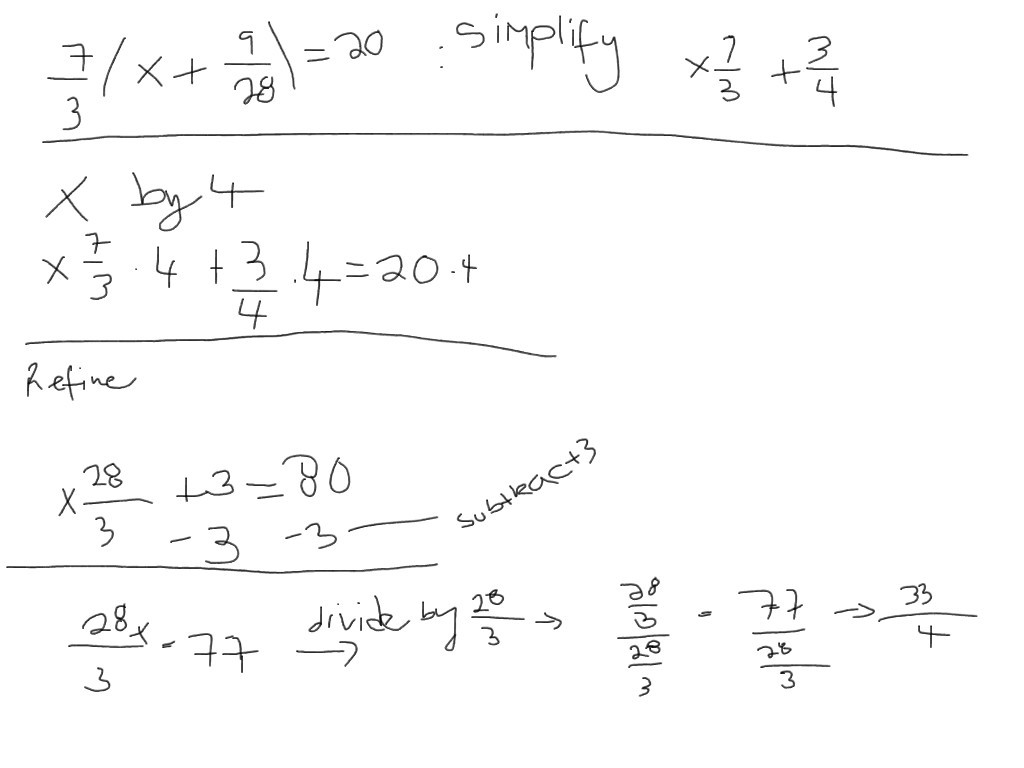 7/3 (x + 9/28) = 20 : simplify x 7/3 + 3/4
x by 4
x 7/3 · 4 + 3/4 · 4 = 20 · 4
Refine
x 28/3 + 3 = 80
- 3 - 3 subtract 3
28x/3 = 77 divide by 28/3 → 28/3 / 28/3 = 77 / 28/3 → 33/4